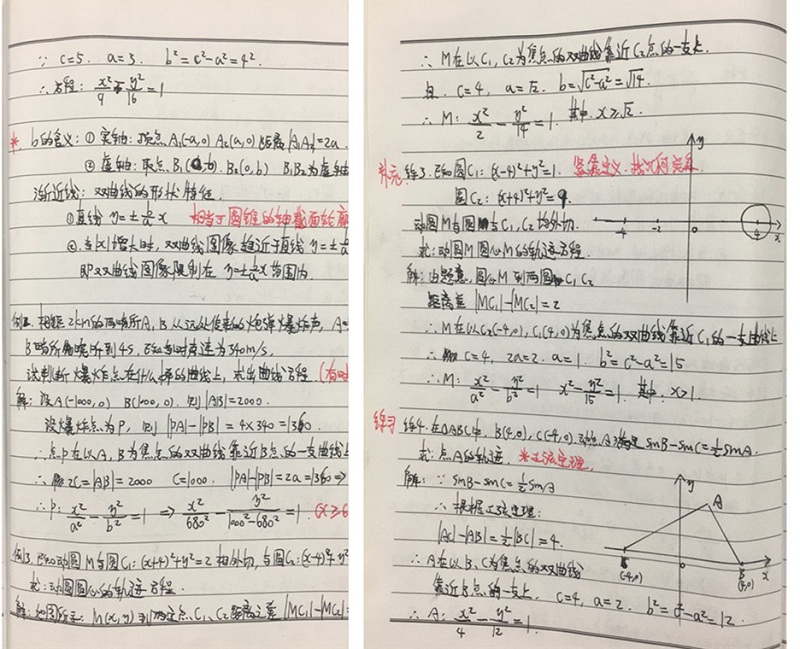 ∵ c=5. a=3. b²=c²-a²=4².
∴方程: x²/9 - y²/16 = 1
* b的含义: ① 实轴: 顶点 A₁(-a,0) A₂(a,0) 距离 |A₁A₂|=2a.
② 虚轴: 取点 B₁(0,-b). B₂(0,b) B₁B₂为虚轴
渐近线: 双曲线的形状特征.
①直线 y=±b/a x 相当于圆锥的轴截面轮廓
②当|x|增大时, 双曲线图像趋近于直线 y=±b/a
即双曲线图像限制在 y=±b/a x 范围内.
例2. 相距2km的两哨所A,B 从远处传来的炮弹爆炸声, A
B哨所 听到4s, 已知当时声速为340m/s,
试判断爆炸点在什么样的曲线上, 求出曲线方程
解: 设A(-1000,0) B(1000,0). 则|AB|=2000.
设爆炸点为P, 则 |PA|-|PB|=4×340=1360.
∴点P在以A,B为焦点的双曲线靠近B点的一支曲线上
∴ 2c=|AB|=2000 c=1000. |PA|-|PB|=2a=1360 ⇒
∴P: x²/a² - y²/b² = 1 ⇒ x²/680² - y²/(1000²-680²) = 1 (x≥6
例3. 已知动圆M与圆C₁: (x+4)²+y²=2 相外切, 与圆C₂: (x-4)²+y²
求: 动圆圆心的轨迹方程.
解: 如图所示: M(x,y)到两定点C₁、C₂距离之差 |MC₁|-|MC₂|=
∴M在以C₁,C₂为焦点的双曲线靠近C₂点的一支上.
且. c=4, a=√2. b=√(c²-a²)=√14.
∴M: x²/2 - y²/14 = 1. 其中. x≥√2.
补充 练3. 已知圆C₁: (x-4)²+y²=1. 紧靠定义,
圆C₂: (x+4)²+y²=9.
动圆M与圆C₁,C₂均外切.
求: 动圆M圆心M的轨迹方程.
解: 由题意, 圆心M到两圆心C₁C₂
距离差 |MC₂|-|MC₁|=2
∴M在以C₂(-4,0), C₁(4,0)为焦点的双曲线靠近C₁的一支曲线上
∴ c=4, 2a=2. a=1. b²=c²-a²=15
∴M: x²/a² - y²/b² = 1 x²-y²/15=1. 其中: x>1.
练习 练4. 在△ABC中, B(4,0), C(-4,0), 动点A满足 sinB-sinC=½sinA.
求: 点A的轨迹. *正弦定理.
解: ∵ sinB-sinC=½sinA
∴根据正弦定理:
|AC|-|AB|=½|BC|=4.
∴A在以B,C为焦点的双曲线
靠近B点的一支上, c=4, a=2. b²=c²-a²=12.
∴A: x²/4 - y²/12 = 1.
y
-4 -2 0 4 x
y
A
(-4,0) 0 B (4,0) x